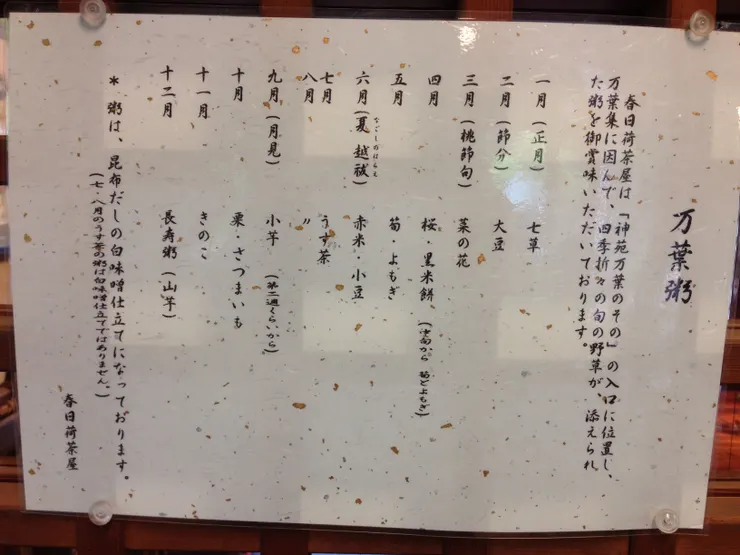 万葉粥
春日荷茶屋は「神苑万葉のその」の入口に位置し、
万葉集に因んで、四季折々の旬の野草が、添えられ
た粥を御賞味いただいております。
一月(正月) 七草
二月(節分) 大豆
三月(桃節句) 菜の花
四月 桜・黒米餅(中旬から 筍とよもぎ)
五月 筍・よもぎ
六月(夏越祓) 赤米・小豆
なごしのはらえ
七月 うす茶
八月 〃
九月(月見) 小芋(第二週くらいから)
十月 栗・さつまいも
十一月 きのこ
十二月 長寿粥(山芋)
*粥は、昆布だしの白味噌仕立てになっております。
(七・八月のうす茶の粥は白味噌仕立てではありません。)
春日荷茶屋